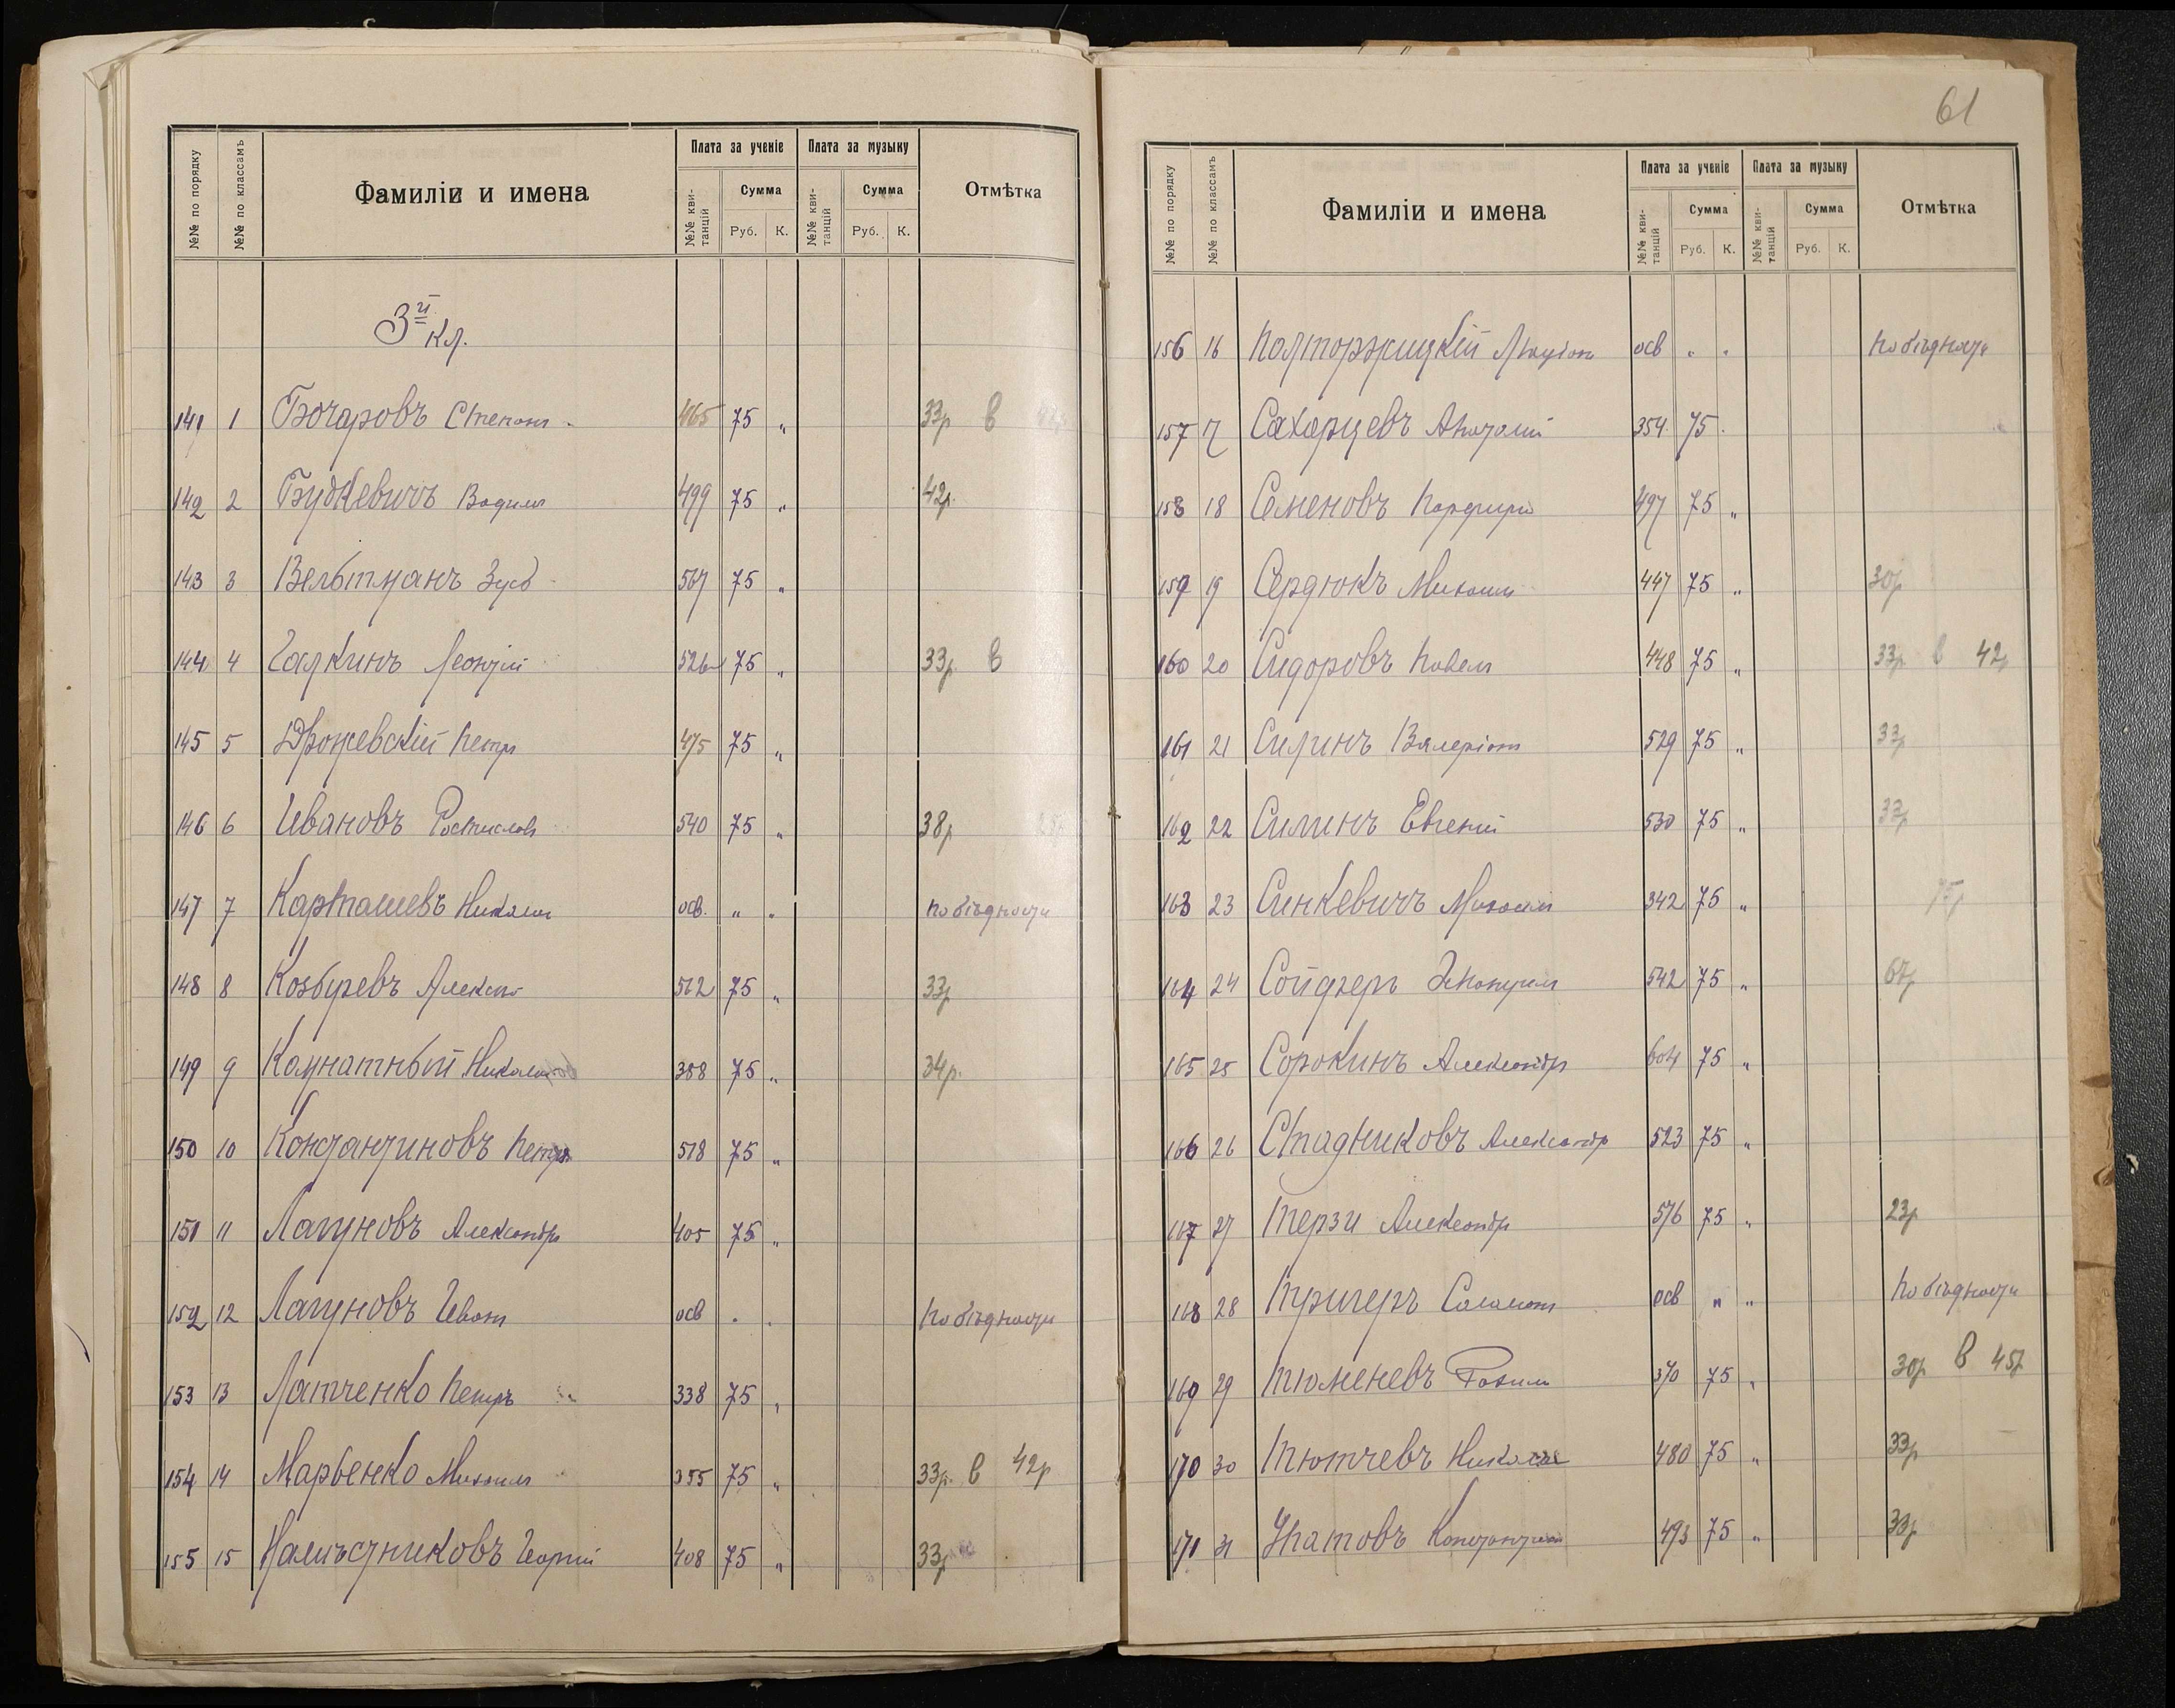 №№ по порядку №№ по классамъ Фамиліи и имена Плата за ученіе Плата за музыку Отмѣтка
№№ квитанцій Сумма Руб. К. №№ квитанцій Сумма Руб. К.
3й кл.
141 1 Бочаровъ Степанъ 465 75 „ 33р в
142 2 Будкевичъ Вадимъ 499 75 „ 42р.
143 3 Вельтманъ 567 75 „
144 4 Галкинъ Леонтій 526 75 „ 33р. в
145 5 Дрожевскій Петръ 475 75 „
146 6 Ивановъ Ростиславъ 540 75 „ 38р
147 7 Карташевъ Николай осв. „ „ по бѣдности
148 8 Козыревъ 562 75 „ 33р
149 9 Комнатный Николай 388 75 „ 34р.
150 10 Константиновъ Петръ 518 75 „
151 11 Лагуновъ Александръ 405 75 „
152 12 Лагуновъ Иванъ осв . . по бѣдности
153 13 Латченко Петръ 338 75 „
154 14 Марьенко Михаилъ 355 75 „ 33р. в 42р
155 15 Намѣстниковъ Георгій 408 75 „ 33р
61
№№ по порядку №№ по классамъ Фамиліи и имена Плата за ученіе Плата за музыку Отмѣтка
№№ квитанцій Сумма Руб. К. №№ квитанцій Сумма Руб. К.
156 16 Полторжицкій осв „ „ по бѣдности
157 17 Сахарцевъ Анатолій 354 75
158 18 Семеновъ Порфирій 497 75 „
159 19 Сердюкъ Михаилъ 447 75 „ 30р
160 20 Сидоровъ Павелъ 448 75 „ 33р в 42р
161 21 Силинъ Валеріанъ 529 75 „ 33р
162 22 Силинъ Евгеній 530 75 „ 33р
163 23 Синкевичъ Михаилъ 342 75 „ 75р
164 24 Сойферъ 542 75 „ 67р
165 25 Сорокинъ Александръ 604 75 „
166 26 Стадниковъ Александръ 523 75 „
167 27 Терзи Александръ 576 75 „ 23р
168 28 Тригеръ Соломонъ осв „ „ по бѣдности
169 29 Тюменевъ 370 75 „ 30р в 45р
170 30 Тютчевъ Николай 480 75 „ 33р
171 31 Унатовъ Константинъ 493 75 „ 33р